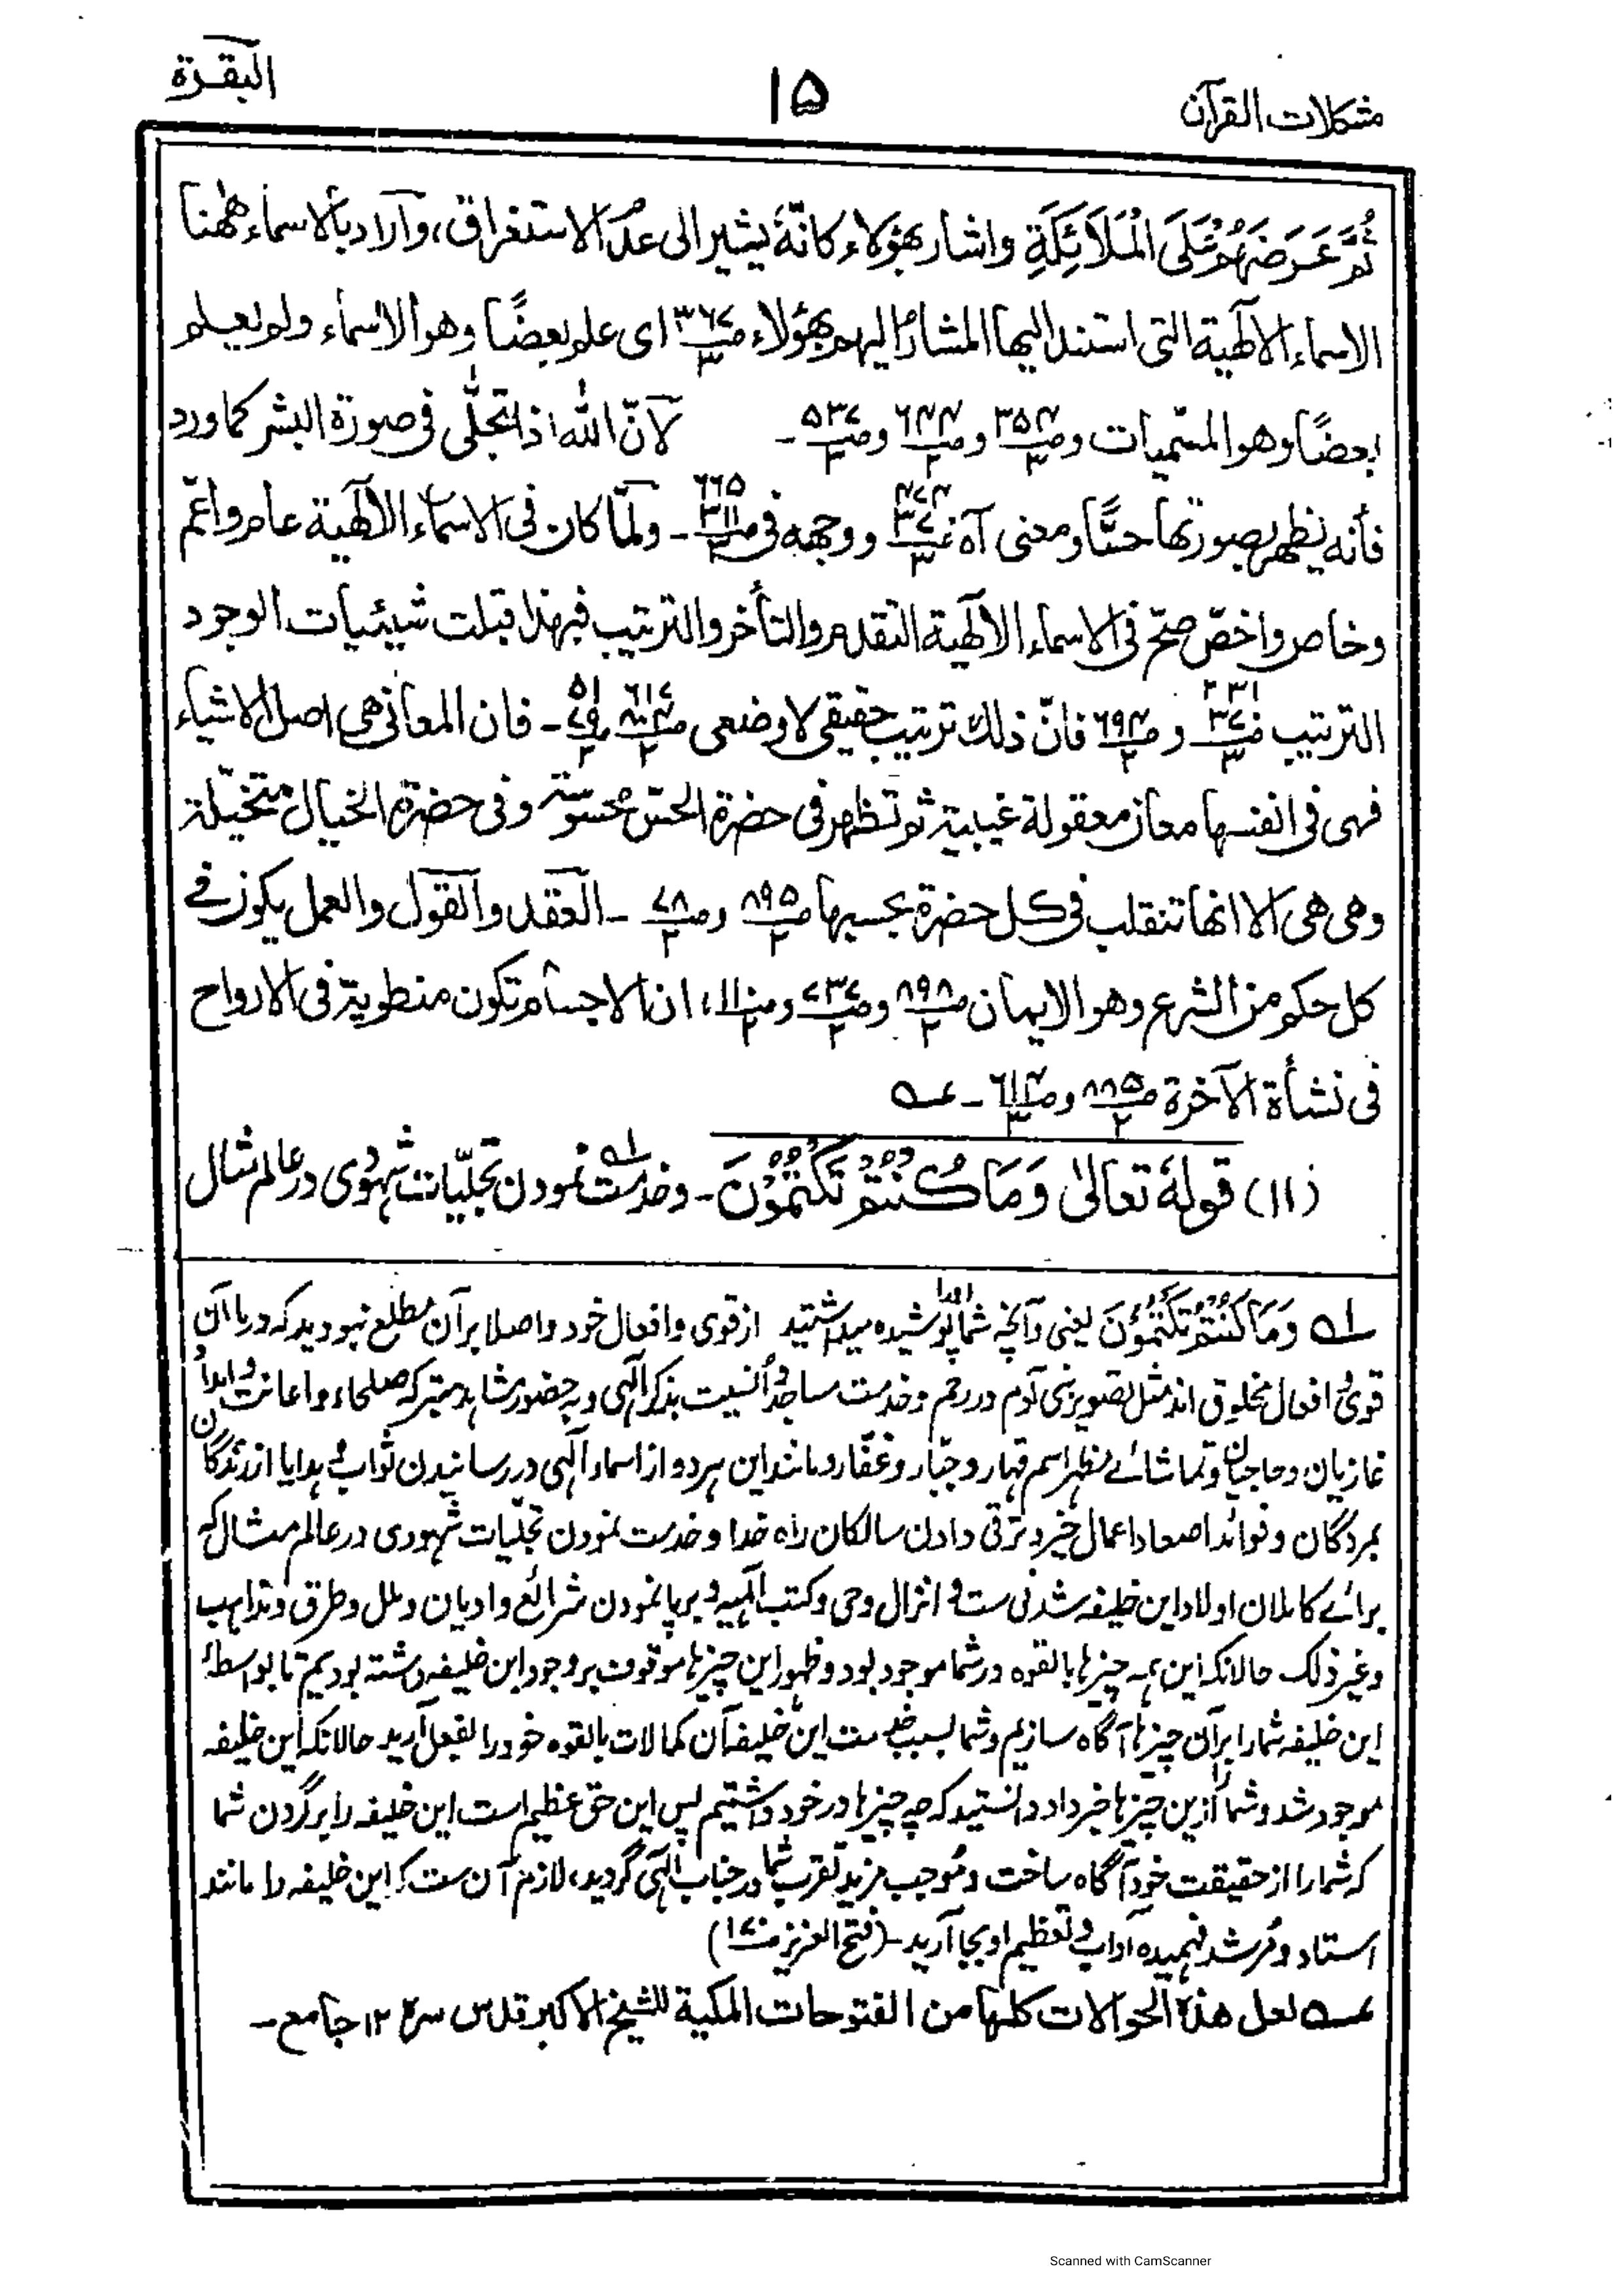 مشکلات القرآن
۱۵
البقرة
ثُمَّ عَرَضَهُمْ عَلَى الْمَلَائِكَةِ واشار بهؤلاء كانّهٗ يشير الى عدم الاستغراق، وآراد بالاسماء ههُنا
الاسماء الالٰهية التى استند اليها المشار اليهم بهؤلاء ص۳۶۷/۳ اى علم بعضًا وهو الاسماء ولم يعلم
بعضًا وهو المسمّيات وص۳۵۴/۳ وص۶۴۴/۲ وص۵۳۷/۲ - لآنّ اللّٰه اذا تجلّٰى فى صورة البشر كما ورد
فأنه يظهر بصورتها حسًّا ومعنى آه ووجهه فى - ولمّا كان فى الاسماء الالٰهية عام واعّم
وخاص واخصّ صحّ فى الاسماء الالٰهية التقدم والتأخر والترتيب فبهذا قبلت شيئيات الوجود
الترتيب وص۶۹۴/۲ فانّ ذلك ترتيب حقيقى لا وضعى - فان المعانى هى اصل الاشياء
فهى فى انفسها معان معقولة غيبية ثم تظهر فى حضرة الحسّ محسوسة وفى حضرة الخيال متخيّلة
وهى هى الا انها تنقلب فى كل حضرة بحسبها ص۸۹۵/۲ وص۷۸/۲ - العقد والقول والعمل يكون فى
كل حكم من الشرع وهو الايمان ص۸۹۸/۲ وص۷۳۷/۲ وص۱۱/۲، ان الاجسام تكون منطوية فى الارواح
فى نشأة الآخرة ص۸۸۵/۲ وص۶۱۴/۳ - عه
(۱۱) قولهٗ تعالىٰ وَمَا كُنْتُمْ تَكْتُمُوْنَ - وخدمت نمودن تجلیّات شہودی در عالم مثال
له وَمَا كُنْتُمْ تَكْتُمُوْنَ یعنی وآنچہ شما پوشیدہ میداشتید از قوی وافعال خود واصلا برآن مطلع نبودید کہ دریں آن
قویٰ وافعال مخلوق اند مثل تصویر بنی آدم در رحم وخدمت مساجد وانسیت بذکر الٰہی وبہ حضور مشاہد متبرکہ صلحاء واعانت وامداد
غازیان وحاجیان وتماشائے مظہر اسم قہار وجبّار وغفّار ومانند این ہر دو از اسماء الٰہی در رسانیدن ثواب وہدایا از زندگان
بمردگان وفوائد اصعاد اعمال خیر وترقی دادن سالکان راہ خدا وخدمت نمودن تجلّیات شہودی در عالم مثال کہ
برائے کاملان اولاد این خلیفہ شدنی ست وانزال وحی وکتب الٰہیہ وبرپا نمودن شرائع وادیان وملل وطرق ومذاہب
وغیر ذلک حالانکہ این ہمہ چیزہا بالقوہ در شما موجود بود وظہور این چیزہا موقوف بر وجود این خلیفہ داشتہ بودیم تا بواسطۂ
این خلیفہ شما را برآن چیزہا آگاہ سازیم وشما بسبب خدمت این خلیفہ آن کمالات بالقوہ خود را بفعل آرید حالانکہ این خلیفہ
موجود شد وشما را ازین چیزہا خبر داد ودانستید کہ چہ چیزہا در خود داشتیم پس این حق عظیم است این خلیفہ را بر گردن شما
کہ شما را از حقیقت خود آگاہ ساخت وموجب مزید تقرب شما در جناب الٰہی گردید، لازم آن ست کہ این خلیفہ را مانند
استاد ومرشد فہمیدہ آداب وتعظیم او بجا آرید - (فتح العزیز ص۱۷۰)
عه لعل هذه الحوالات كلها من الفتوحات المكية للشيخ الاكبر قدس سره ۱۲ جامع -
Scanned with CamScanner